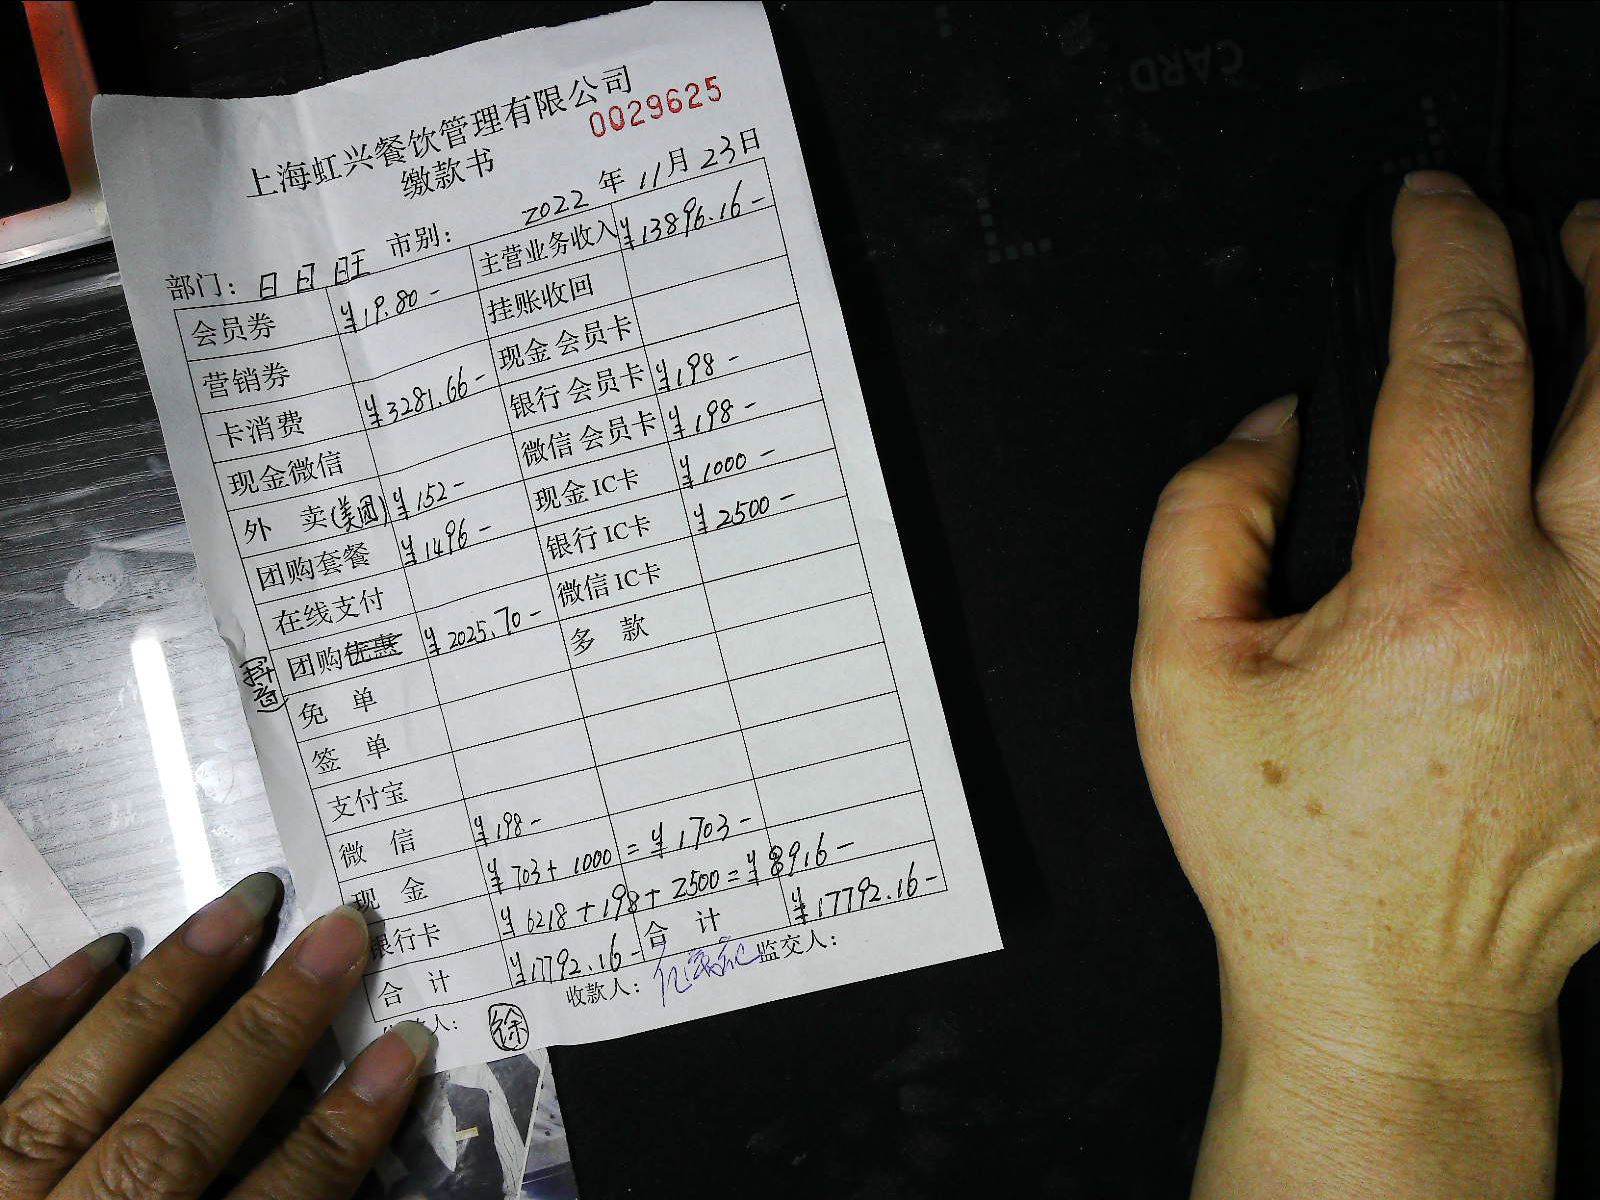 上海虹兴餐饮管理有限公司
0029625
缴款书
2022 年 11 月 23 日
部门: 日日旺 市别:
会员券 ¥19.80- 主营业务收入 ¥13896.16-
营销券 挂账收回
卡消费 ¥3281.66- 现金会员卡
现金微信 银行会员卡 ¥198-
外 卖(美团) ¥152- 微信会员卡 ¥198-
团购套餐 ¥1496- 现金IC卡 ¥1000-
在线支付 银行IC卡 ¥2500-
团购优惠 ¥2025.70- 微信IC卡
(抖音)
免 单 多 款
签 单
支付宝
微 信 ¥198-
现 金 ¥703+1000=¥1703-
银行卡 ¥6218+198+2500=¥8916-
合 计 ¥17792.16- 合 计 ¥17792.16-
人: 徐 收款人: 监交人:
CARD